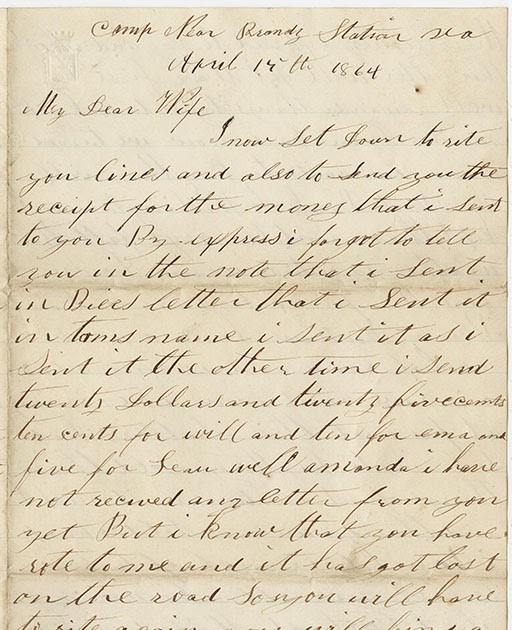 Camp Near Brandy Station va
April 15th 1864
My Dear Wife
I now set Down to rite
you lines and also to send you the
receipt for the money that i sent
to you By express i forgot to tell
you in the note that i sent
in Dices letter that i sent it
in toms name i sent it as i
sent it the other time i send
twenty Dollars and twenty five cents
ten cents for will and ten for ema and
five for well amanda i have
not recived any letter from you
yet But i know that you have
rote to me and it has got lost
on the road so you will have
to rite again